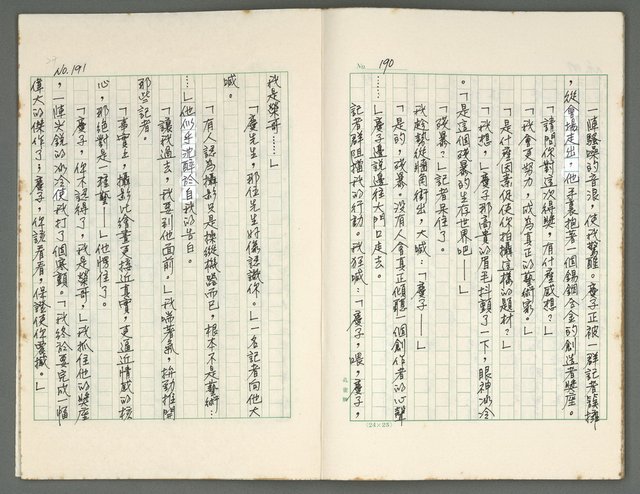 No. 190
一陣騷嚷的音浪，使我驚醒。慶子正被一群記者簇擁
，從會場走出，他手裏抱著一個錫銅合金的創造者獎座。
「請問你對這次得獎，有什麼感想？」
「我會更努力，成為真正的藝術家。」
「是什麼因素促使你拍攝這樣的題材？」
「我想，」慶子那高貴的眉毛抖顫了一下，眼神冰冷
。「是這個殘暴的生存世界吧——」
「殘暴？」記者呆住了。
我趁勢從牆角衝出，大喊：「慶子——」
「是的，殘暴。沒有人會真正傾聽一個創作者的心聲
……」慶子邊說邊往大門口走去。
記者群阻擋我的行動。我狂喊：「慶子，喂，慶子，
(24×25)
No. 191
我是榮哥……」
「慶先生，那位先生好像認識你。」一名記者向他大
喊。
「有人認為攝影只是操縱機器而已，根本不是藝術…
…」他似乎沈醉於自我的告白。
「讓我過去，我要到他面前。」我喘著氣，拚勁推開
那些記者。
「事實上，攝影比繪畫更接近真實，更逼近情感的核
心，那絕對是一種藝——」他愣住了。
「慶子，你不認得了，我是榮哥。」我抓住他的獎座
，一陣尖銳的冰冷使我打了個寒顫。「我終於要完成一幅
偉大的傑作了，慶子，你說看看，保證使你震撼。」